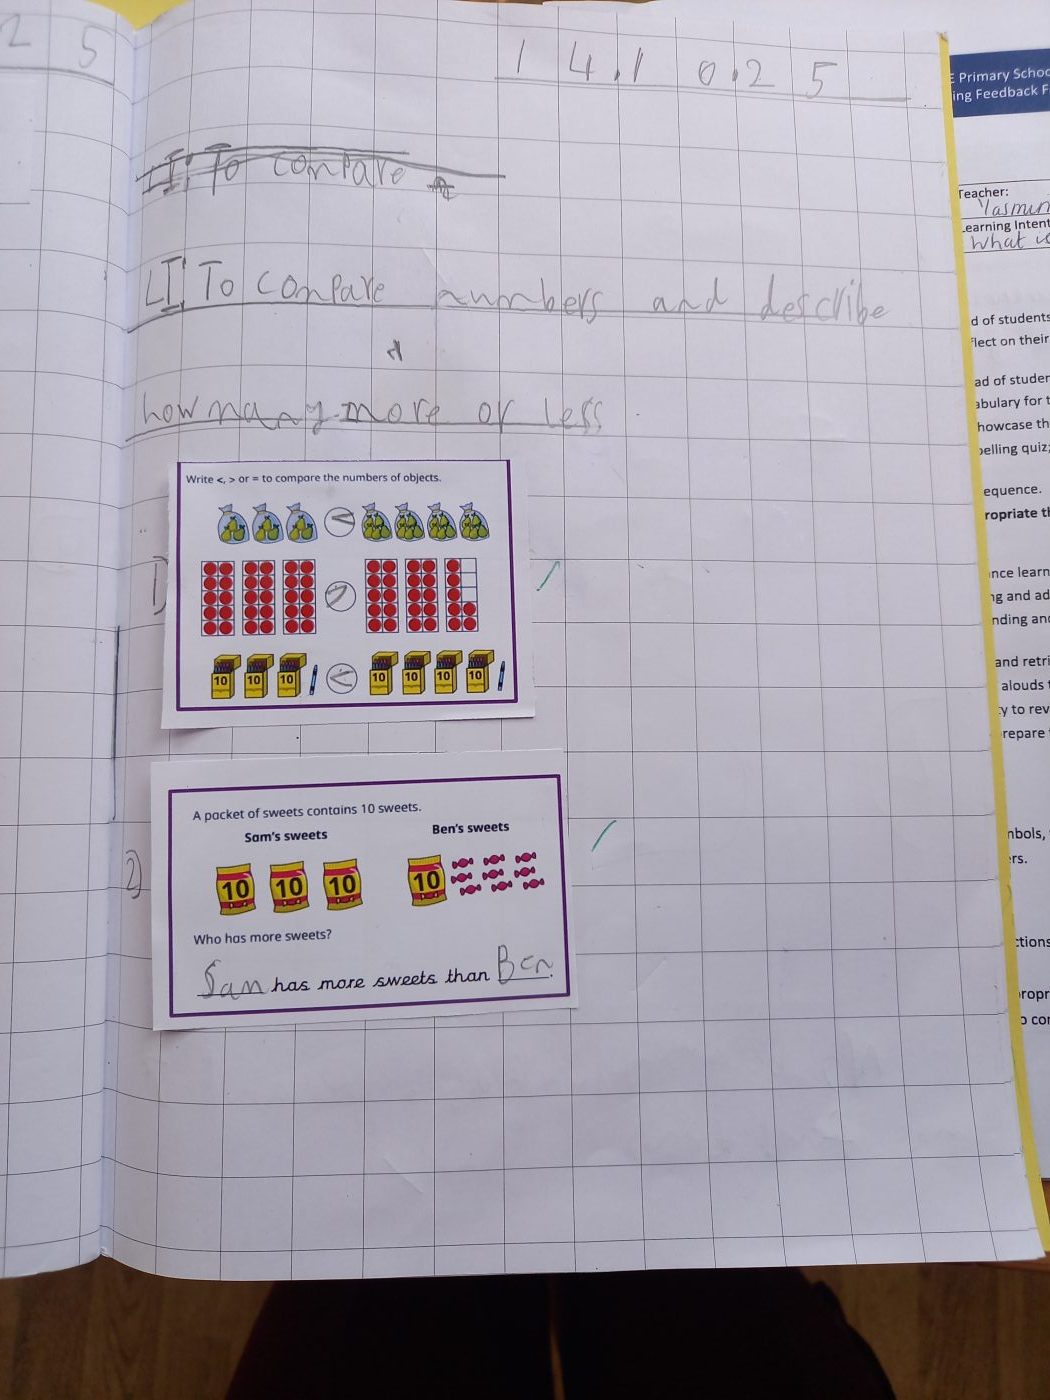 2 5
14.10.25
LI: To compare
LI: To compare numbers and describe
how many more or less
Write <, > or = to compare the numbers of objects.
<
1)
>
10 10 10 < 10 10 10 10
A packet of sweets contains 10 sweets.
Sam's sweets Ben's sweets
2)
10 10 10 10
Who has more sweets?
Sam has more sweets than Ben.
E Primary Schoo
ing Feedback F
Teacher:
Yasmin
Learning Intent
What is
d of students
flect on their
ad of studen
abulary for t
howcase th
pelling quiz;
equence.
ropriate th
nce learn
ng and ad
nding and
and retri
alouds t
ty to rev
repare
mbols,
rs.
ctions
ropr
o cor